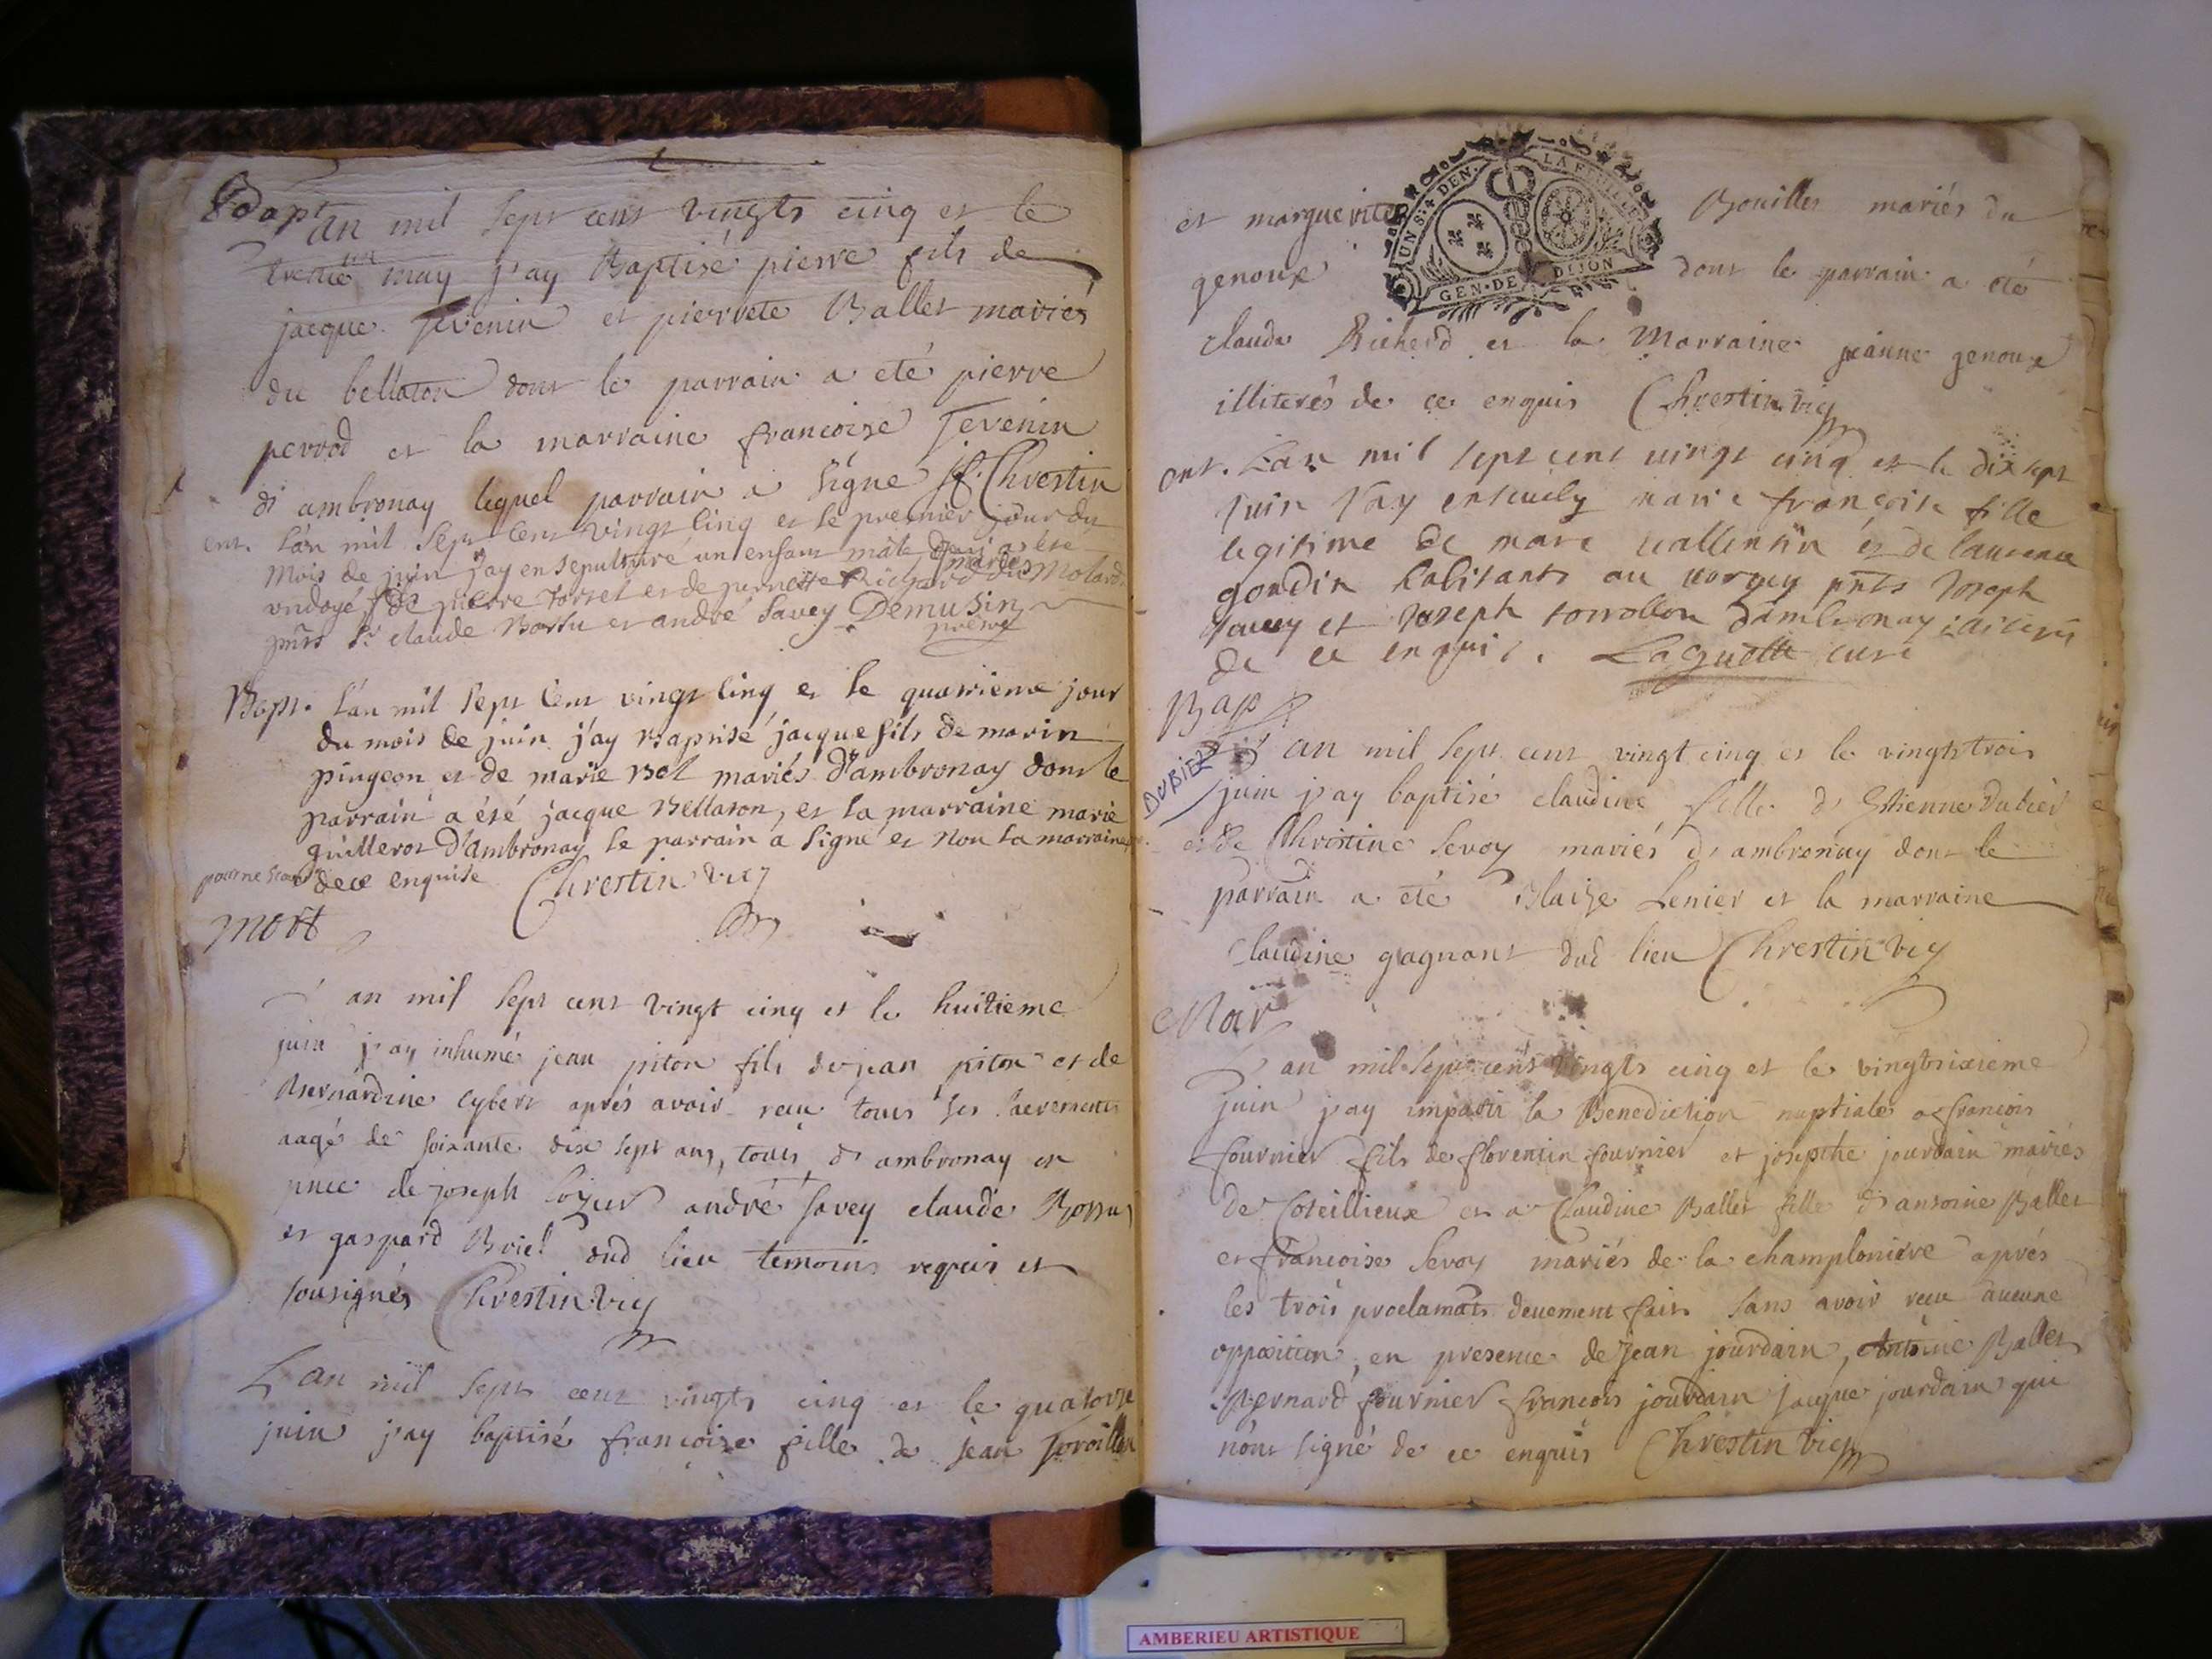 Bapt
L'an mil sept cent vingts cinq et le
trente un may j'ay Baptisé pierre fils de
jacque Jevenin et pierrete Ballet mariés
du bellaton dont le parrain a eté pierre
perrod et la marraine francoise Jevenin
d'ambronay lequel parrain a signé Chrestin
ent. L'an mil sept cent vingt cinq et le premier jour du
mois de juin j'ay ensepulturé un enfant mâle
ondoyé de pierre et de pernette Richard mariés du Molard
pnts Sr claude Bossu et andré Savey Demusin
prêtre
Bapt. L'an mil sept cent vingt cinq et le quatrieme jour
du mois de juin j'ay Baptisé jacque fils de marin
pingeon et de marie Bol mariés d'ambronay dont le
parrain a été jacque Bellaton, et la marraine marie
guilleros d'ambronay le parrain a signé et non la marraine
pour ne scavoir de ce enquise Chrestin vic
mort
L'an mil sept cent vingt cinq et le huitieme
juin j'ay inhumé jean piton fils de jean piton et de
Bernardine Cybert aprés avoir receu tous ses sacrements
aagé de soixante dix sept ans, tous d'ambronay en
pnce de joseph andré Savey claude Bossu
et gaspard Briel dud lieu temoins requis et
sousignés Chrestin vic
L'an mil sept cent vingts cinq et le quatorze
juin j'ay baptisé francoise fille de jean
et marguerite Bouillet mariés du
genoux dont le parrain a eté
UN S. 4 DEN. LA FEUILLE
GEN. DE DIJON
claude Richerd et la Marraine jeanne genoux
illiterés de ce enquis Chrestin vic
ent. L'an mil sept cent vingt cinq et le dix sept
juin j'ay ensevely marie françoise fille
legitime de marc vallentin et de laurence
gondin habitants au pnts joseph
Savey et joseph d'ambronay
de ce enquis. Laguette curé
Bap
DUBIEZ
L'an mil sept cent vingt cinq et le vingts trois
juin j'ay baptisé claudine fille d'Estienne Dubier
et de Christine Sevoy mariés d'ambronay dont le
parrain a eté Blaize Lenier et la marraine
Claudine gagnant dud lieu Chrestin vic
Mar
L'an mil sept cent vingts cinq et le vingtsixieme
juin j'ay imparti la Benediction nuptiale a francois
fournier fils de florentin fournier et josepthe jourdain mariés
de Coteillieux et a Claudine Ballet fille d'antoine Ballet
et francoise Sevoy mariés de la championiere aprés
les trois proclamats deuement faits sans avoir receu aucune
opposition, en presence de jean jourdain, Antoine Ballet
Bernard fournier francois jourdain jacque jourdain qui
n'ont signé de ce enquis Chrestin vic
AMBERIEU ARTISTIQUE